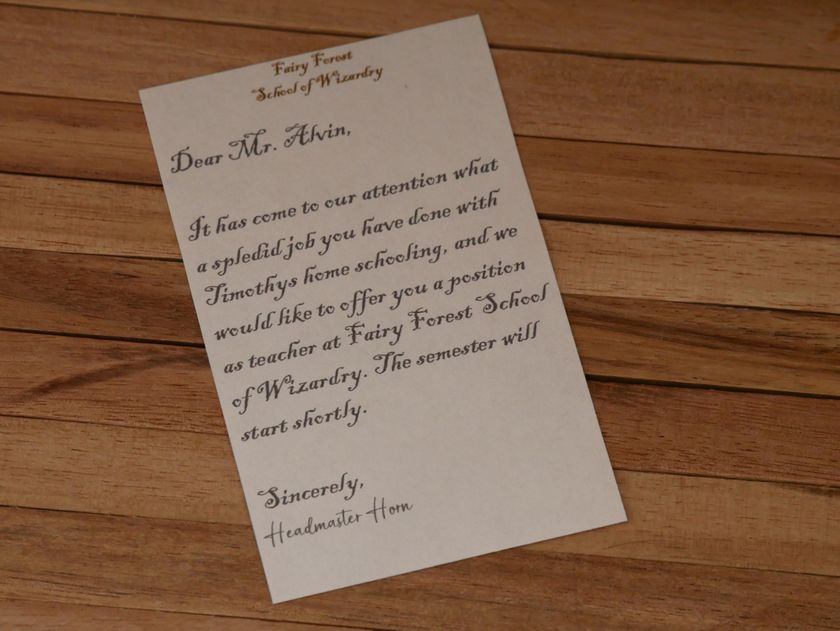 Fairy Forest
School of Wizardry
Dear Mr. Alvin,
It has come to our attention what
a spledid job you have done with
Timothys home schooling, and we
would like to offer you a position
as teacher at Fairy Forest School
of Wizardry. The semester will
start shortly.
Sincerely,
Headmaster Horn